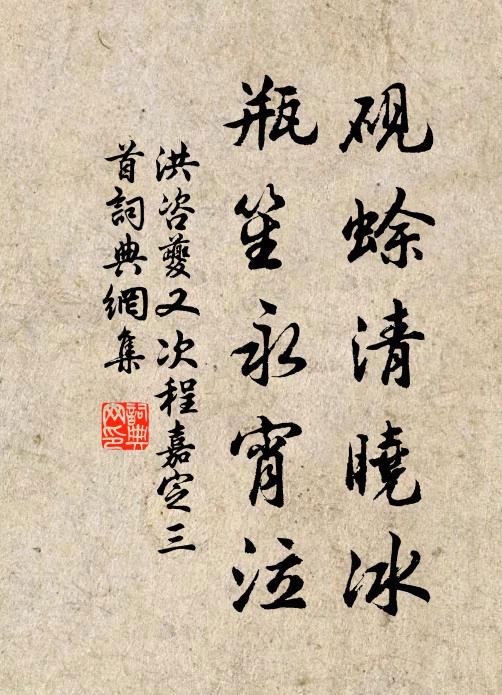 硯蜍清曉冰
瓶笙永宵泣
洪咨夔又次程嘉定三
首詞典網集
詞典
網印